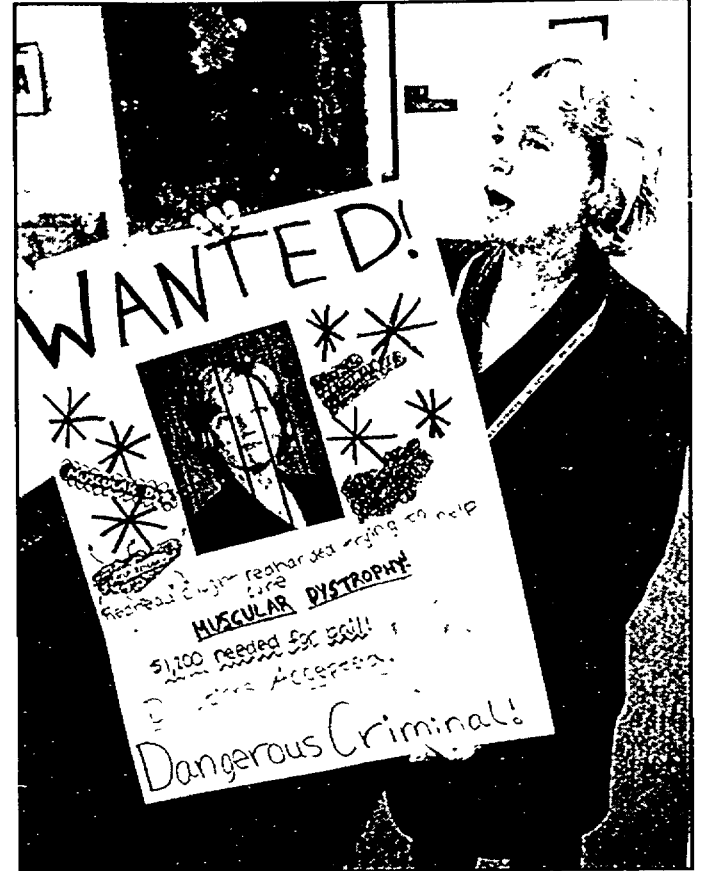 A
WANTED!
trying to help
cure
MUSCULAR DYSTROPHY!
$1,200 needed for bail!
Accepted.
Dangerous Criminal!